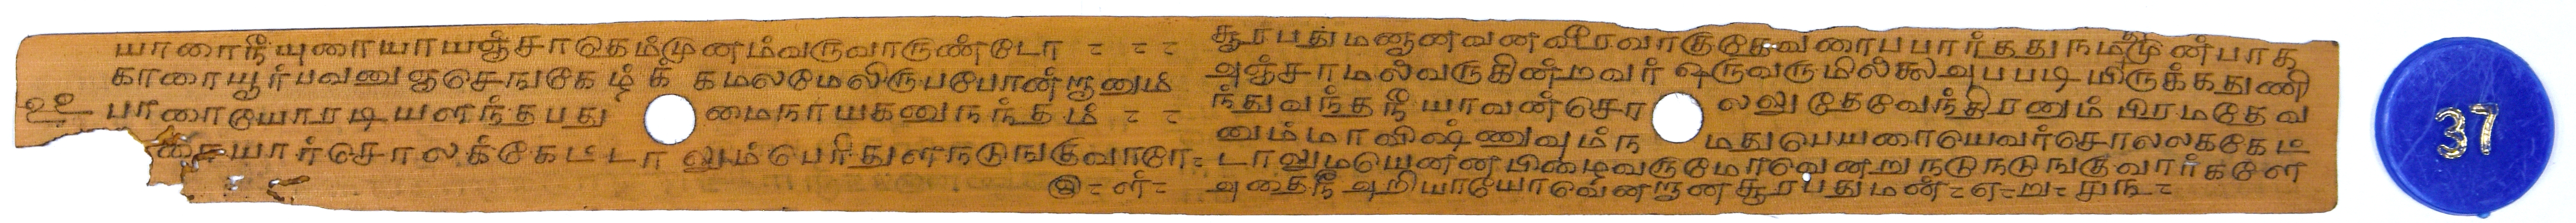 யாரைநீயுரையாயஞ்சாதெம்முனம்வருவாருண்டோ - - -
காரையூர்பவனுஞசெஙகேழ்க் கமலமேலிருபபோன்றானும்
உ பாரையோரடியளந்தபது மைநாயகனுநந்தம் - -
யார்சொலக்கேட்டா லும்பெரிதுளநடுஙகுவாரே -
சூரபதுமனானவனவீரவாகுதேவரைபபார்ததுநம்முன்பாக
அஞ்சாமல்வருகின்றவர் ஒருவருமில்லைஅபபடியிருக்கதுணி
ந்துவந்தநீயாவன்சொ லலுதேவேந்திரனும் பிரமதேவ
னும்மாவிஷ்ணுவும்ந மதுபெயரையெவர்சொலலககேட்
டாலுமயென்னபிழைவருமோவெனறு நடுநடுஙகுவார்களே
அதைநீஅறியாயோவென்றானசூரபதுமன்-எ-று-
37